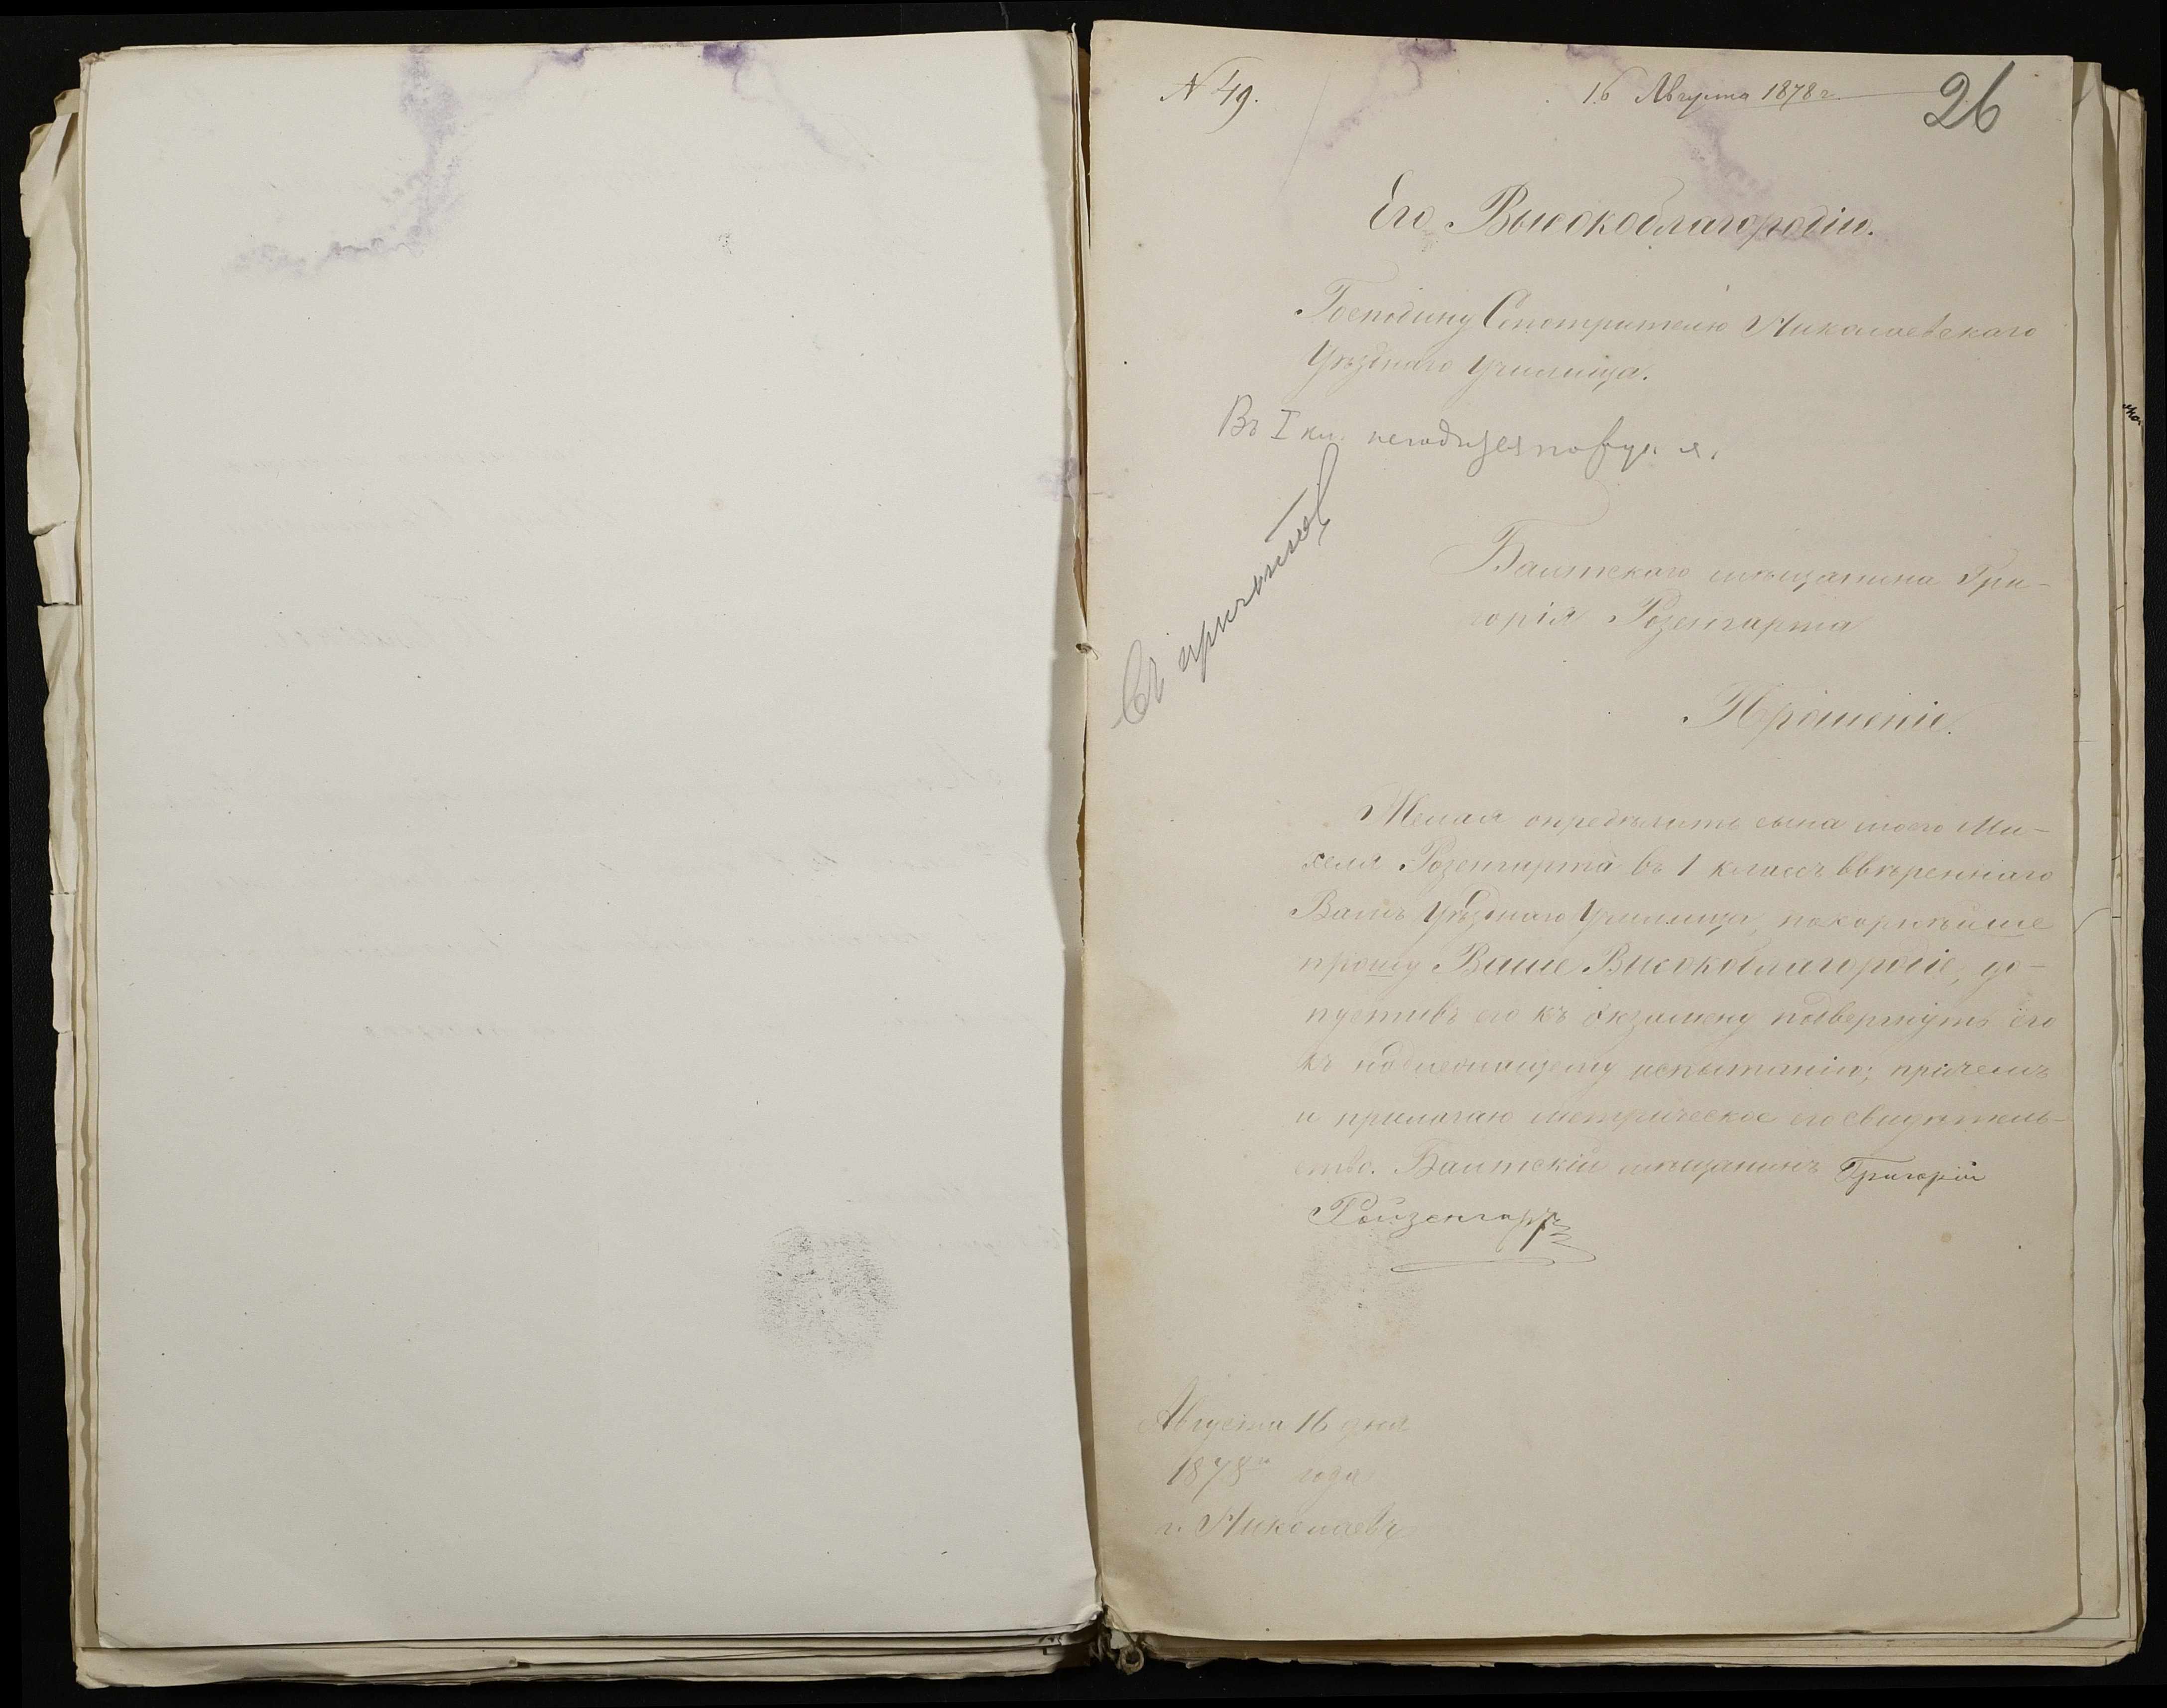 N 49.
16 Августа 1878 г.
26
Его Высокоблагородію.
Господину Смотрителю Николаевскаго
Уѣзднаго Училища.
Въ I кл. негодится по
Балтскаго мѣщанина Гри-
горія Розенгарта
Прошеніе.
Желая опредѣлить сына моего Ми-
хеля Розенгарта въ 1 классъ ввѣреннаго
Вамъ Уѣзднаго Училища, покорнѣйше
прошу Ваше Высокоблагородіе, до-
пустивъ его къ экзамену подвергнуть его
къ надлежащему испытанію; причемъ
и прилагаю метрическое его свидѣтель-
ство. Балтскій мѣщанинъ Григорій
Ройзенгартъ
Августа 16 дня
1878 года
г. Николаевъ